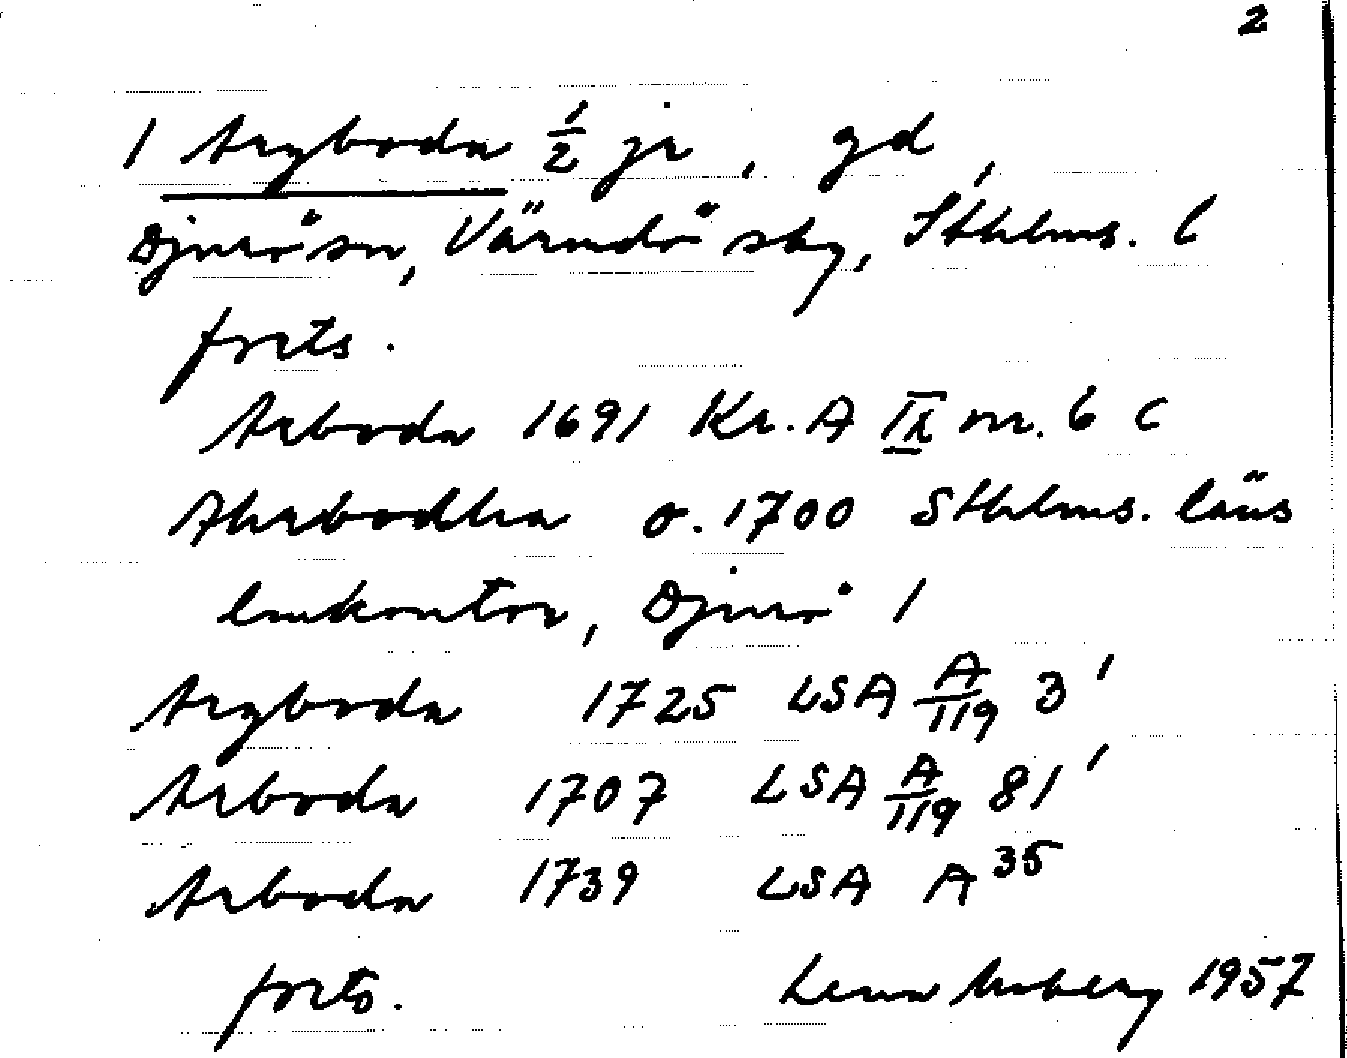 2
1 Argboda 1/2 jr, gd,
Djurö sn, Värmdö sky, Sthlms. l
forts.
Arboda 1691 Kr. A IX nr. 6 c
Ahrbodha o. 1700 Sthlms. läns
lmkontor, Djurö 1
Argboda 1725 LSA A/119 3'
Arboda 1707 LSA A/119 81'
Arboda 1739 LSA A 35
forts. Lena Moberg 1957